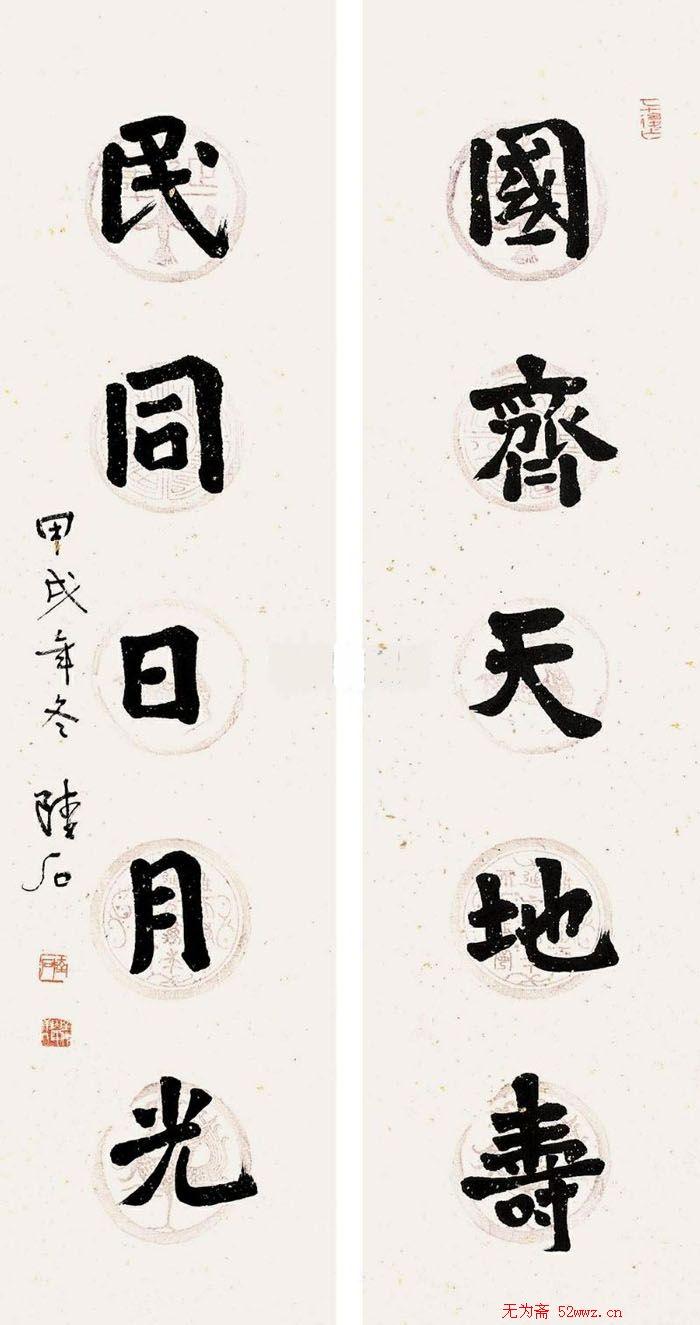 國齊天地壽
民同日月光
甲戌年冬
陸石
无为斋 52wwz.cn